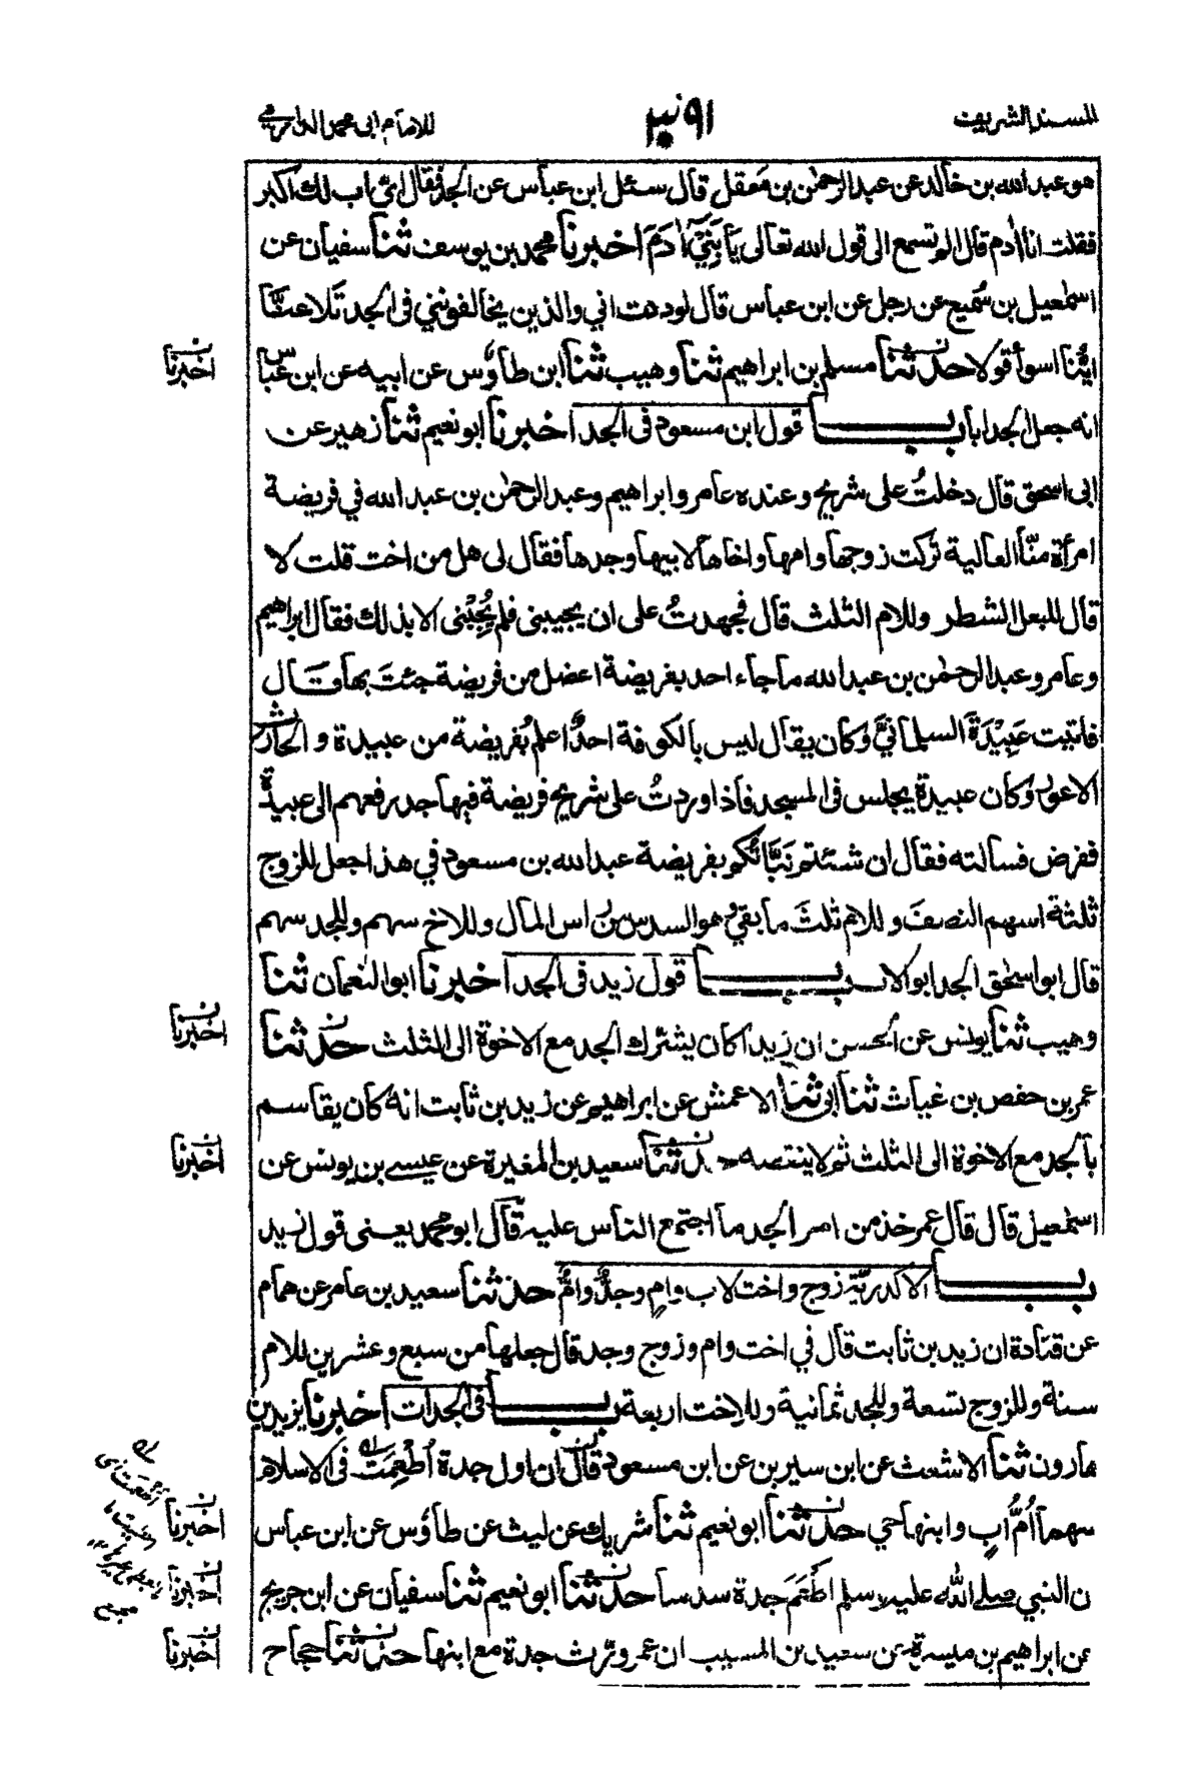 للمسند الشريف
٣٩١
للامام ابى محمد الدارمي
هو عبد الله بن خالد عن عبد الرحمٰن بن مَعقل قال سئل ابن عباس عن الجد فقال ائ اب لك اكبر
فقلت انا اٰدم قال الم تسمع الى قول الله تعالى يَا بَنِيْ اٰدَمَ اخبرنا محمد بن يوسف ثنا سفيان عن
اسمٰعيل بن سُميع عن رجل عن ابن عباس قال لوددت اني والذين يخالفونني فى الجد تلاعنّا
ايُّنا اسوأ قولا حدثنا مسلم بن ابراهيم ثنا وهيب ثنا ابن طاوُس عن ابيه عن ابن عباس
اخبرنا
انه جعل الجد ابا باب قول ابن مسعود فى الجد اخبرنا ابو نعيم ثنا زهير عن
ابى اسحق قال دخلتُ على شريح وعنده عامر وابراهيم وعبد الرحمٰن بن عبد الله في فريضة
امرأة منّا العالية تركت زوجها وامها واخاها لابيها وجدها فقال لى هل من اخت قلت لا
قال للبعل الشطر وللام الثلث قال فجهدتُ على ان يجيبنى فلم يُجِبْنى الا بذلك فقال ابراهيم
وعامر وعبد الرحمٰن بن عبد الله ما جاء احد بفريضة اعضل من فريضة جئتَ بها قال
فاتيت عَبِيْدَةَ السلمانيَّ وكان يقال ليس بالكوفة احدٌ اعلم بفريضة من عبيدة و الحارث
الاعور وكان عبيدة يجلس فى المسجد فاذا وردتُ على شريح فريضة فيها جد رفعهم الى عبيدة
ففرض فسالته فقال ان شئتم نَبَّأتُكم بفريضة عبد الله بن مسعود في هذا جعل للزوج
ثلثة اسهم النصفَ وللام ثلثَ ما بقي وهو السدس من راس المال وللاخ سهم وللجد سهم
قال ابو اسحٰق الجد ابو الاب باب قول زيد فى الجد اخبرنا ابو النعمان ثنا
وهيب ثنا يونس عن الحسن ان زيدا كان يشرك الجد مع الاخوة الى الثلث حدثنا
اخبرنا
عمر بن حفص بن غياث ثنا ابى ثنا الاعمش عن ابراهيم عن زيد بن ثابت انه كان يقاسم
بالجد مع الاخوة الى الثلث ثم لا ينقصه حدثنا سعيد بن المغيرة عن عيسے بن يونس عن
اخبرنا
اسمٰعيل قال قال عمر خذ من امر الجد ما اجتمع الناس عليه قال ابو محمد يعنى قول زيد
باب الاكدريّة زوج واخت لاب وامٍ وجدٌّ وامٌّ حدثنا سعيد بن عامر عن همام
عن قتادة ان زيد بن ثابت قال في اخت وام وزوج وجد قال جعلها من سبع وعشرين للام
ستة وللزوج تسعة وللجد ثمانية وللاخت اربعة باب فى الجدات اخبرنا يزيد بن
هارون ثنا الاشعث عن ابن سيرين عن ابن مسعود قال ان اول جدة اُطْعِمَتْ فى الاسلام
سهما اُمُّ ابٍ وابنها حي حدثنا ابو نعيم ثنا شريك عن ليث عن طاؤس عن ابن عباس
اخبرنا
ن النبي صلے الله عليه وسلم اَطْعَمَ جدة سدسا حدثنا ابو نعيم ثنا سفيان عن ابن جريج
اخبرنا
عن ابراهيم بن ميسرة عن سعيد بن المسيب ان عمر ورّث جدة مع ابنها حدثنا حجاج
اخبرنا